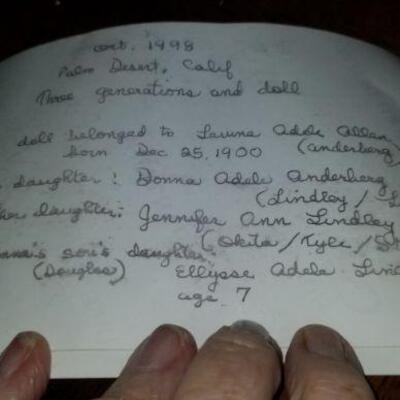 oct. 1998
Palm Desert, Calif
Three generations and doll
doll belonged to Adele Allen
born Dec 25, 1900 (Anderberg)
daughter: Donna Adele Anderberg
(Lindley /
her daughter: Jennifer Ann Lindley
(Okita / Kyle /
son's daughter:
(Douglas) Ellysse Adele
age 7